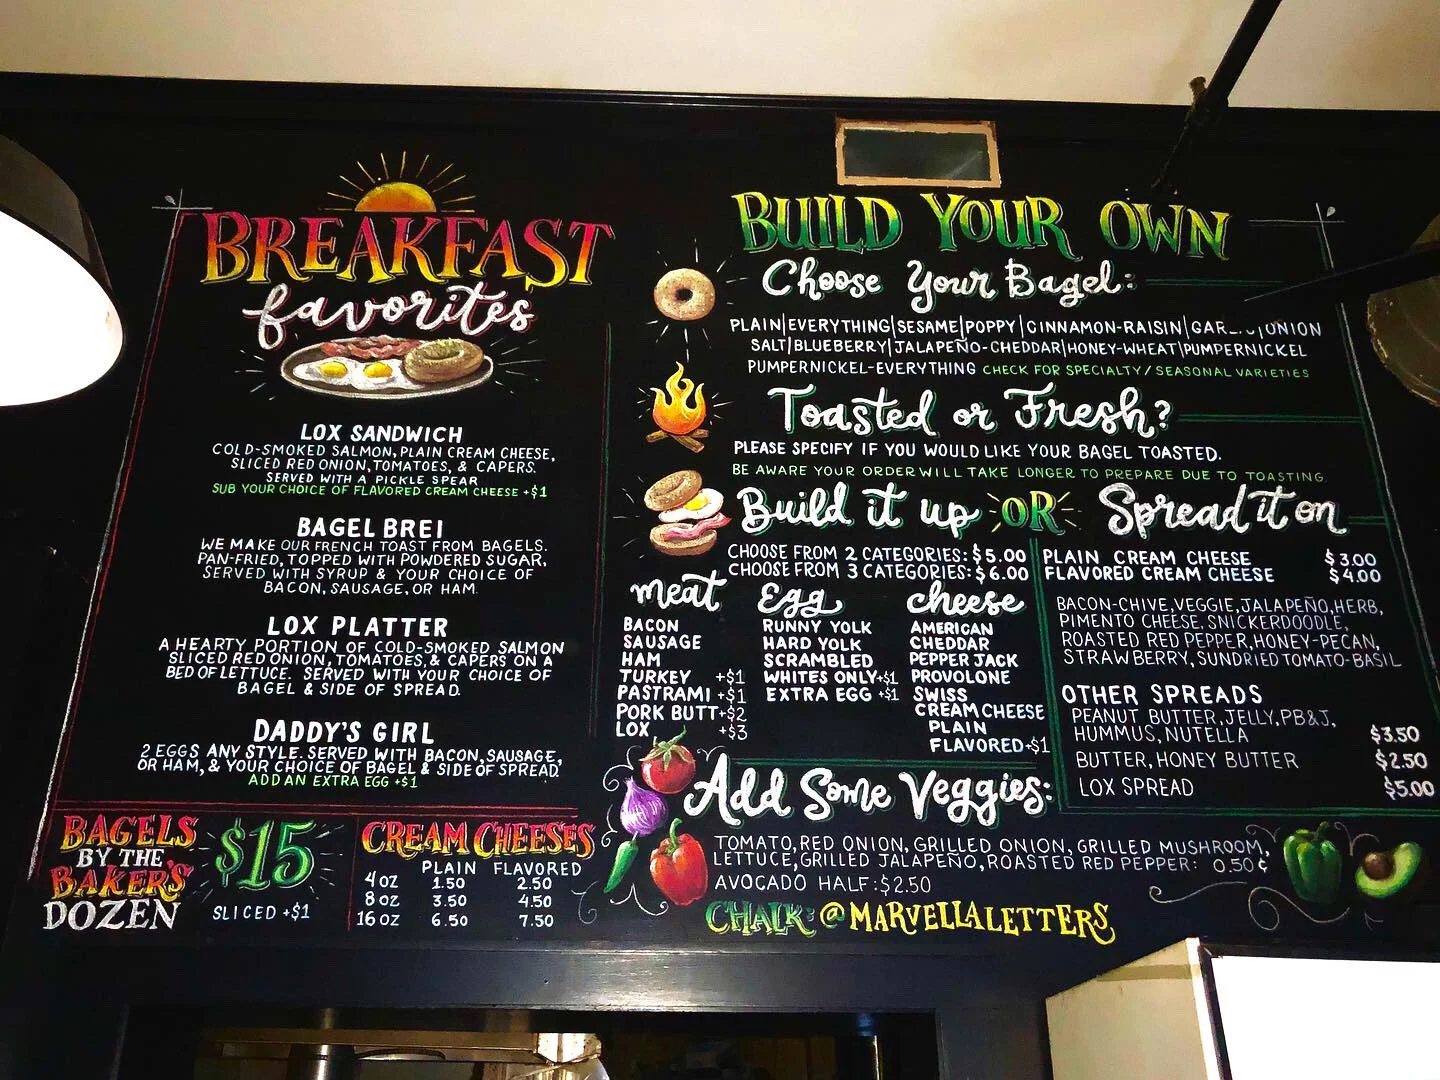 BREAKFAST
favorites
LOX SANDWICH
COLD-SMOKED SALMON, PLAIN CREAM CHEESE,
SLICED RED ONION, TOMATOES, & CAPERS.
SERVED WITH A PICKLE SPEAR
SUB YOUR CHOICE OF FLAVORED CREAM CHEESE +$1
BAGEL BREI
WE MAKE OUR FRENCH TOAST FROM BAGELS.
PAN-FRIED, TOPPED WITH POWDERED SUGAR,
SERVED WITH SYRUP & YOUR CHOICE OF
BACON, SAUSAGE, OR HAM.
LOX PLATTER
A HEARTY PORTION OF COLD-SMOKED SALMON
SLICED RED ONION, TOMATOES, & CAPERS ON A
BED OF LETTUCE. SERVED WITH YOUR CHOICE OF
BAGEL & SIDE OF SPREAD.
DADDY'S GIRL
2 EGGS ANY STYLE. SERVED WITH BACON, SAUSAGE,
OR HAM, & YOUR CHOICE OF BAGEL & SIDE OF SPREAD.
ADD AN EXTRA EGG +$1
BAGELS
BY THE
BAKER'S
DOZEN
$15
SLICED +$1
CREAM CHEESES
PLAIN FLAVORED
4 OZ 1.50 2.50
8 OZ 3.50 4.50
16 OZ 6.50 7.50
BUILD YOUR OWN
Choose Your Bagel:
PLAIN|EVERYTHING|SESAME|POPPY|CINNAMON-RAISIN| |ONION
SALT|BLUEBERRY|JALAPEÑO-CHEDDAR|HONEY-WHEAT|PUMPERNICKEL
PUMPERNICKEL-EVERYTHING CHECK FOR SPECIALTY/SEASONAL VARIETIES
Toasted or Fresh?
PLEASE SPECIFY IF YOU WOULD LIKE YOUR BAGEL TOASTED.
BE AWARE YOUR ORDER WILL TAKE LONGER TO PREPARE DUE TO TOASTING.
Build it up OR Spread it on
CHOOSE FROM 2 CATEGORIES: $5.00
CHOOSE FROM 3 CATEGORIES: $6.00
meat
BACON
SAUSAGE
HAM
TURKEY +$1
PASTRAMI +$1
PORK BUTT +$2
LOX +$3
Egg
RUNNY YOLK
HARD YOLK
SCRAMBLED
WHITES ONLY +$1
EXTRA EGG +$1
cheese
AMERICAN
CHEDDAR
PEPPER JACK
PROVOLONE
SWISS
CREAM CHEESE
PLAIN
FLAVORED +$1
PLAIN CREAM CHEESE $3.00
FLAVORED CREAM CHEESE $4.00
BACON-CHIVE, VEGGIE, JALAPEÑO, HERB,
PIMENTO CHEESE, SNICKERDOODLE,
ROASTED RED PEPPER, HONEY-PECAN,
STRAWBERRY, SUNDRIED TOMATO-BASIL
OTHER SPREADS
PEANUT BUTTER, JELLY, PB&J,
HUMMUS, NUTELLA $3.50
BUTTER, HONEY BUTTER $2.50
LOX SPREAD $5.00
Add Some Veggies:
TOMATO, RED ONION, GRILLED ONION, GRILLED MUSHROOM,
LETTUCE, GRILLED JALAPEÑO, ROASTED RED PEPPER: 0.50¢
AVOCADO HALF: $2.50
CHALK: @MARVELLALETTERS